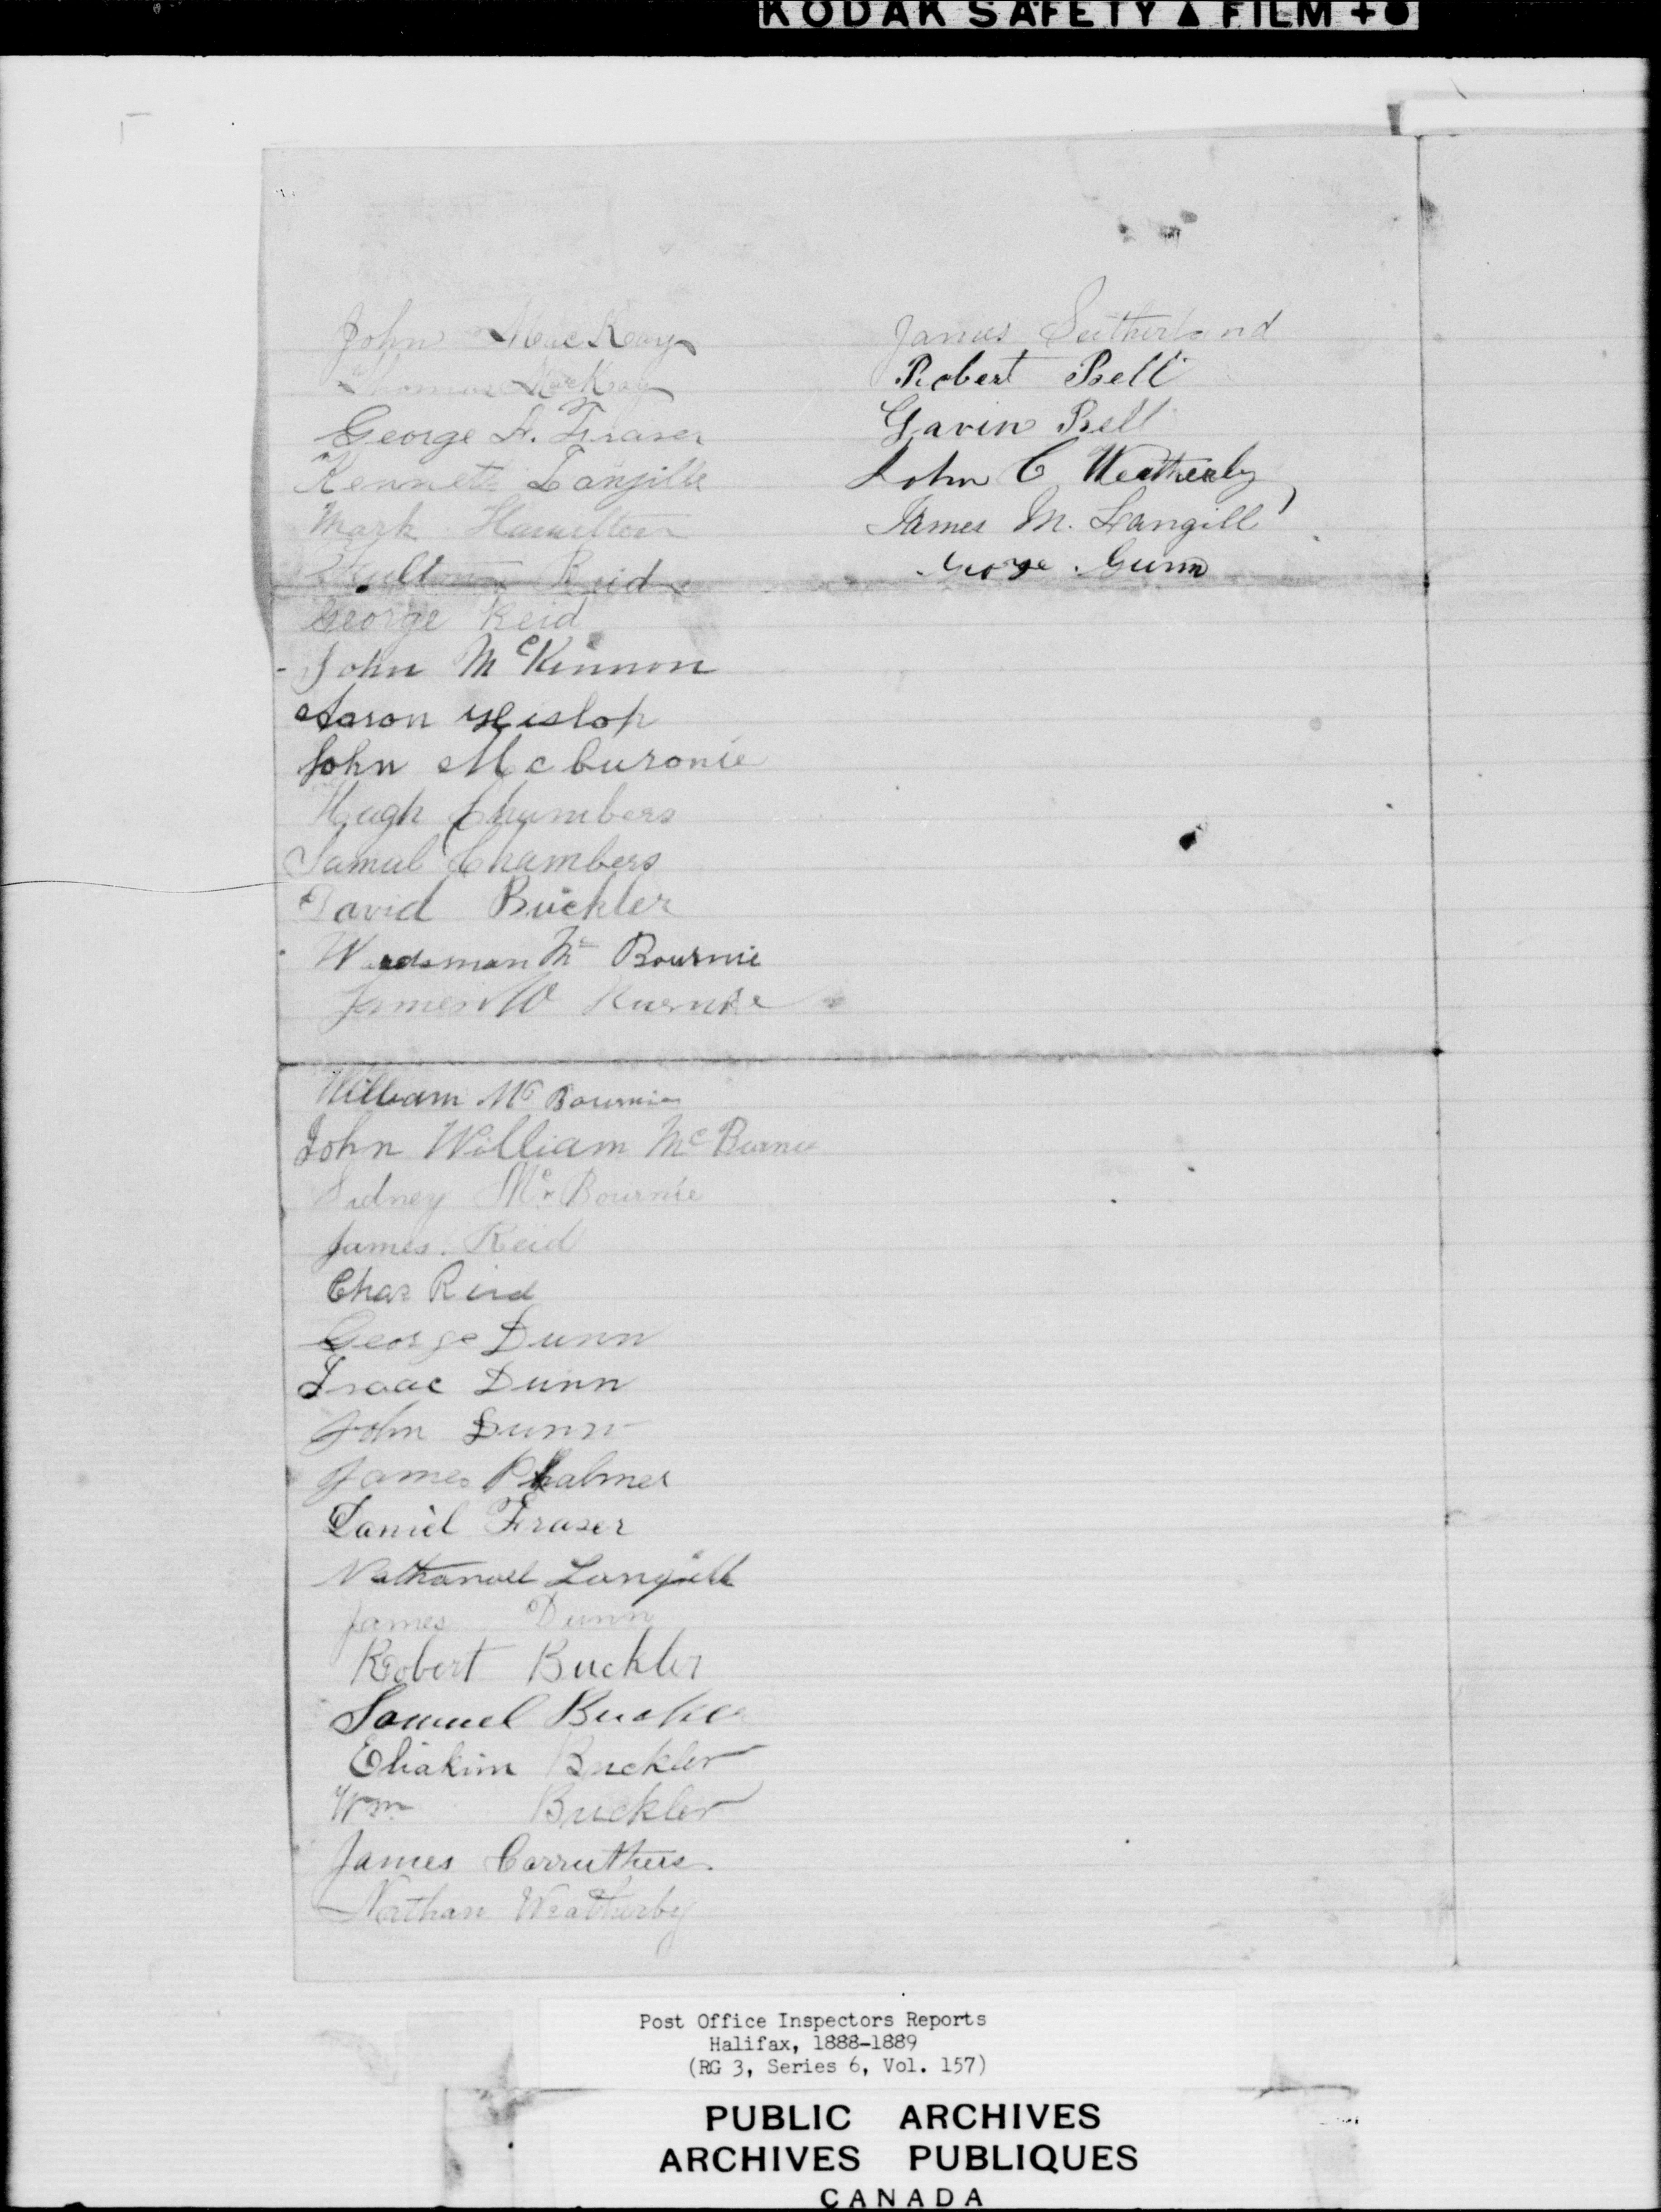 KODAK SAFETY ▲ FILM +●
John MacKay
Thomas MacKay
George A. Fraser
Kenneth Langille
Mark Hamilton
Reid
George Reid
John McKinnon
Aaron Hislop
John Mcburonie
Hugh Chambers
Samuel Chambers
David Buckler
Mc Bournie
James W
William Mc Bournie
John William McBurnie
Sidney Mc Bournie
James. Reid
Chas Reid
George Dunn
Isaac Dunn
John Dunn
James Phalmer
Daniel Fraser
Nathanall Langille
James Dunn
Robert Buckler
Samuel Buckler
Eliakim Buckler
Wm Buckler
James Carruthers.
Nathan Weatherby
James Sutherland
Robert Bell
Gavin Bell
John C Weatherby
James M. Langill
George Gunn
Post Office Inspectors Reports
Halifax, 1888-1889
(RG 3, Series 6, Vol. 157)
PUBLIC ARCHIVES
ARCHIVES PUBLIQUES
CANADA